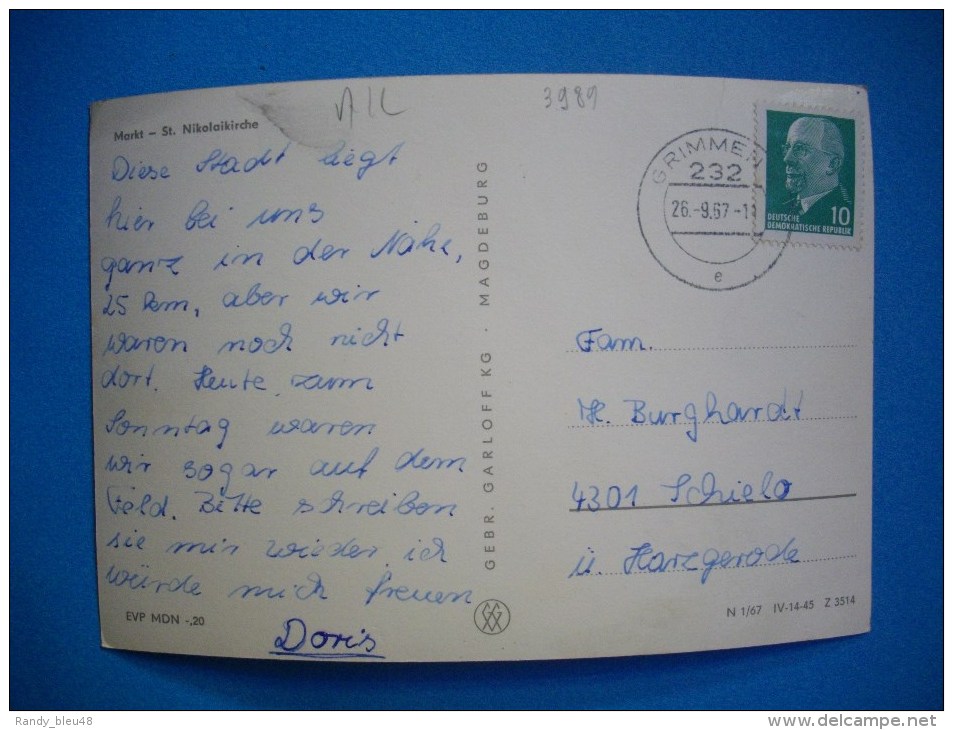 Markt – St. Nikolaikirche
A/L
3989
Diese Stadt liegt
hier bei uns
ganz in der Nähe,
25 km, aber wir
waren noch nicht
dort. Heute, zum
Sonntag waren
wir sogar auf dem
Feld. Bitte schreiben
sie mir wieder ich
würde mich freuen
Doris
EVP MDN -,20
GEBR. GARLOFF KG · MAGDEBURG
GRIMMEN
232
26.-9.67-11
e
10
DEUTSCHE
DEMOKRATISCHE REPUBLIK
Fam.
H. Burghardt
4301 Schielo
ü. Harzgerode
N 1/67 IV-14-45 Z 3514
Randy_bleu48
http://www.delcampe.net